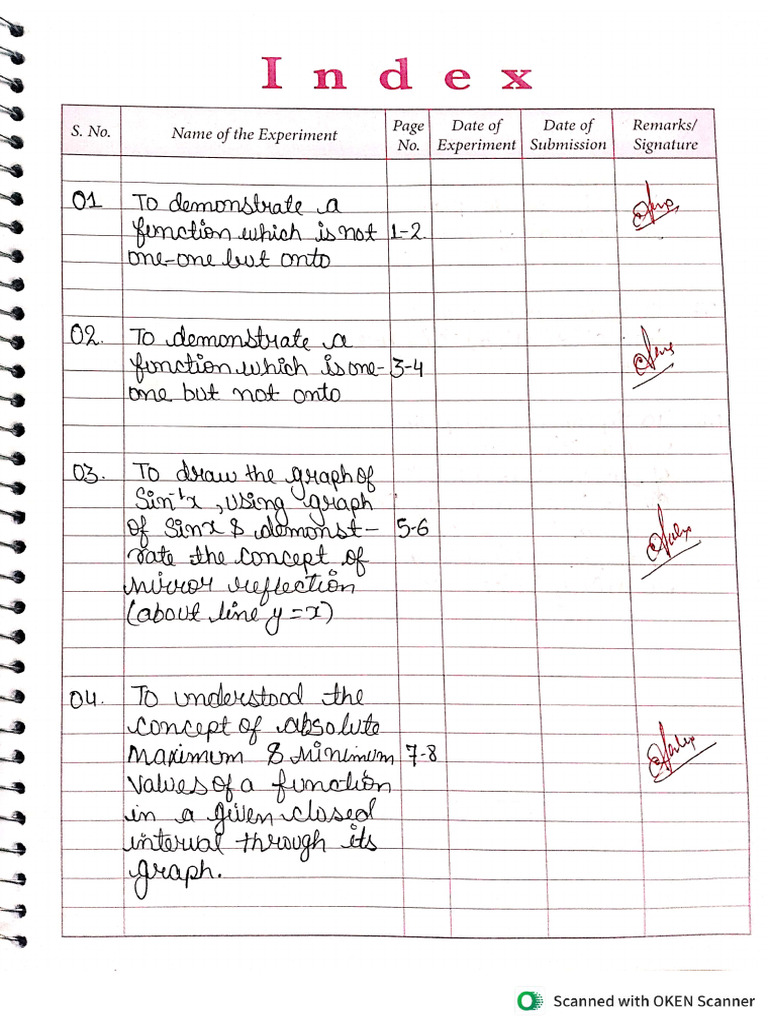 Index
S. No. Name of the Experiment Page No. Date of Experiment Date of Submission Remarks/ Signature
01 To demonstrate a
function which is not 1-2
one-one but onto
02. To demonstrate a
function which is one- 3-4
one but not onto
03. To draw the graph of
Sin⁻¹x, using graph
of Sinx & demonst- 5-6
rate the concept of
mirror reflection
(about line y=x)
04. To understood the
concept of absolute
Maximum & Minimum 7-8
values of a function
in a given closed
interval through its
graph.
Scanned with OKEN Scanner